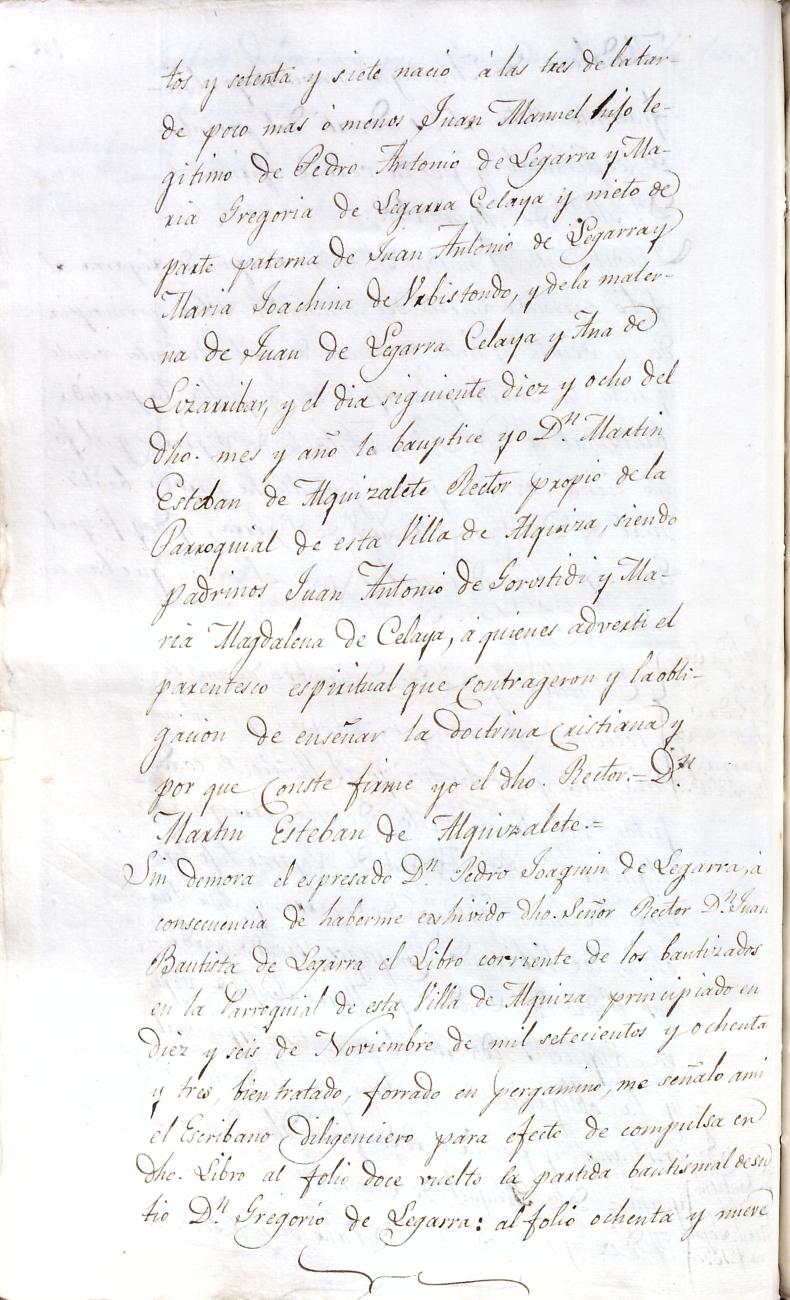 tos y setenta y siete nació á las tres de la tar-
de poco mas ó menos Juan Manuel hijo le-
gitimo de Pedro Antonio de Legarra y Ma-
ria Gregoria de Legarra Celaya y nieto de
parte paterna de Juan Antonio de Legarra y
Maria Joachina de Urbistondo, y de la mater-
na de Juan de Legarra Celaya y Ana de
Lizarribar, y el dia siguiente diez y ocho del
dho. mes y año le bauptice yo Dn. Martin
Esteban de Alquizalete Rector propio de la
Parroquial de esta Villa de Alquiza, siendo
padrinos Juan Antonio de Gorostidi y Ma-
ria Magdalena de Celaya, á quienes adverti el
parentesco espiritual que contrageron y la obli-
gacion de enseñar la doctrina cristiana y
por que conste firme yo el dho. Rector.= Dn.
Martin Esteban de Alquizalete.=
Sin demora el espresado Dn. Pedro Joaquin de Legarra, á
consecuencia de haberme exhivido dho. Señor Rector Dn. Juan
Bautista de Legarra el Libro corriente de los bautizados
en la Parroquial de esta Villa de Alquiza principiado en
diez y seis de Noviembre de mil setecientos y ochenta
y tres, bien tratado, forrado en pergamino, me señalo ami
el Escribano diligenciero para efecto de compulsa en
dho. Libro al folio doce vuelto la partida bautismal de su
tio Dn. Gregorio de Legarra: al folio ochenta y nueve